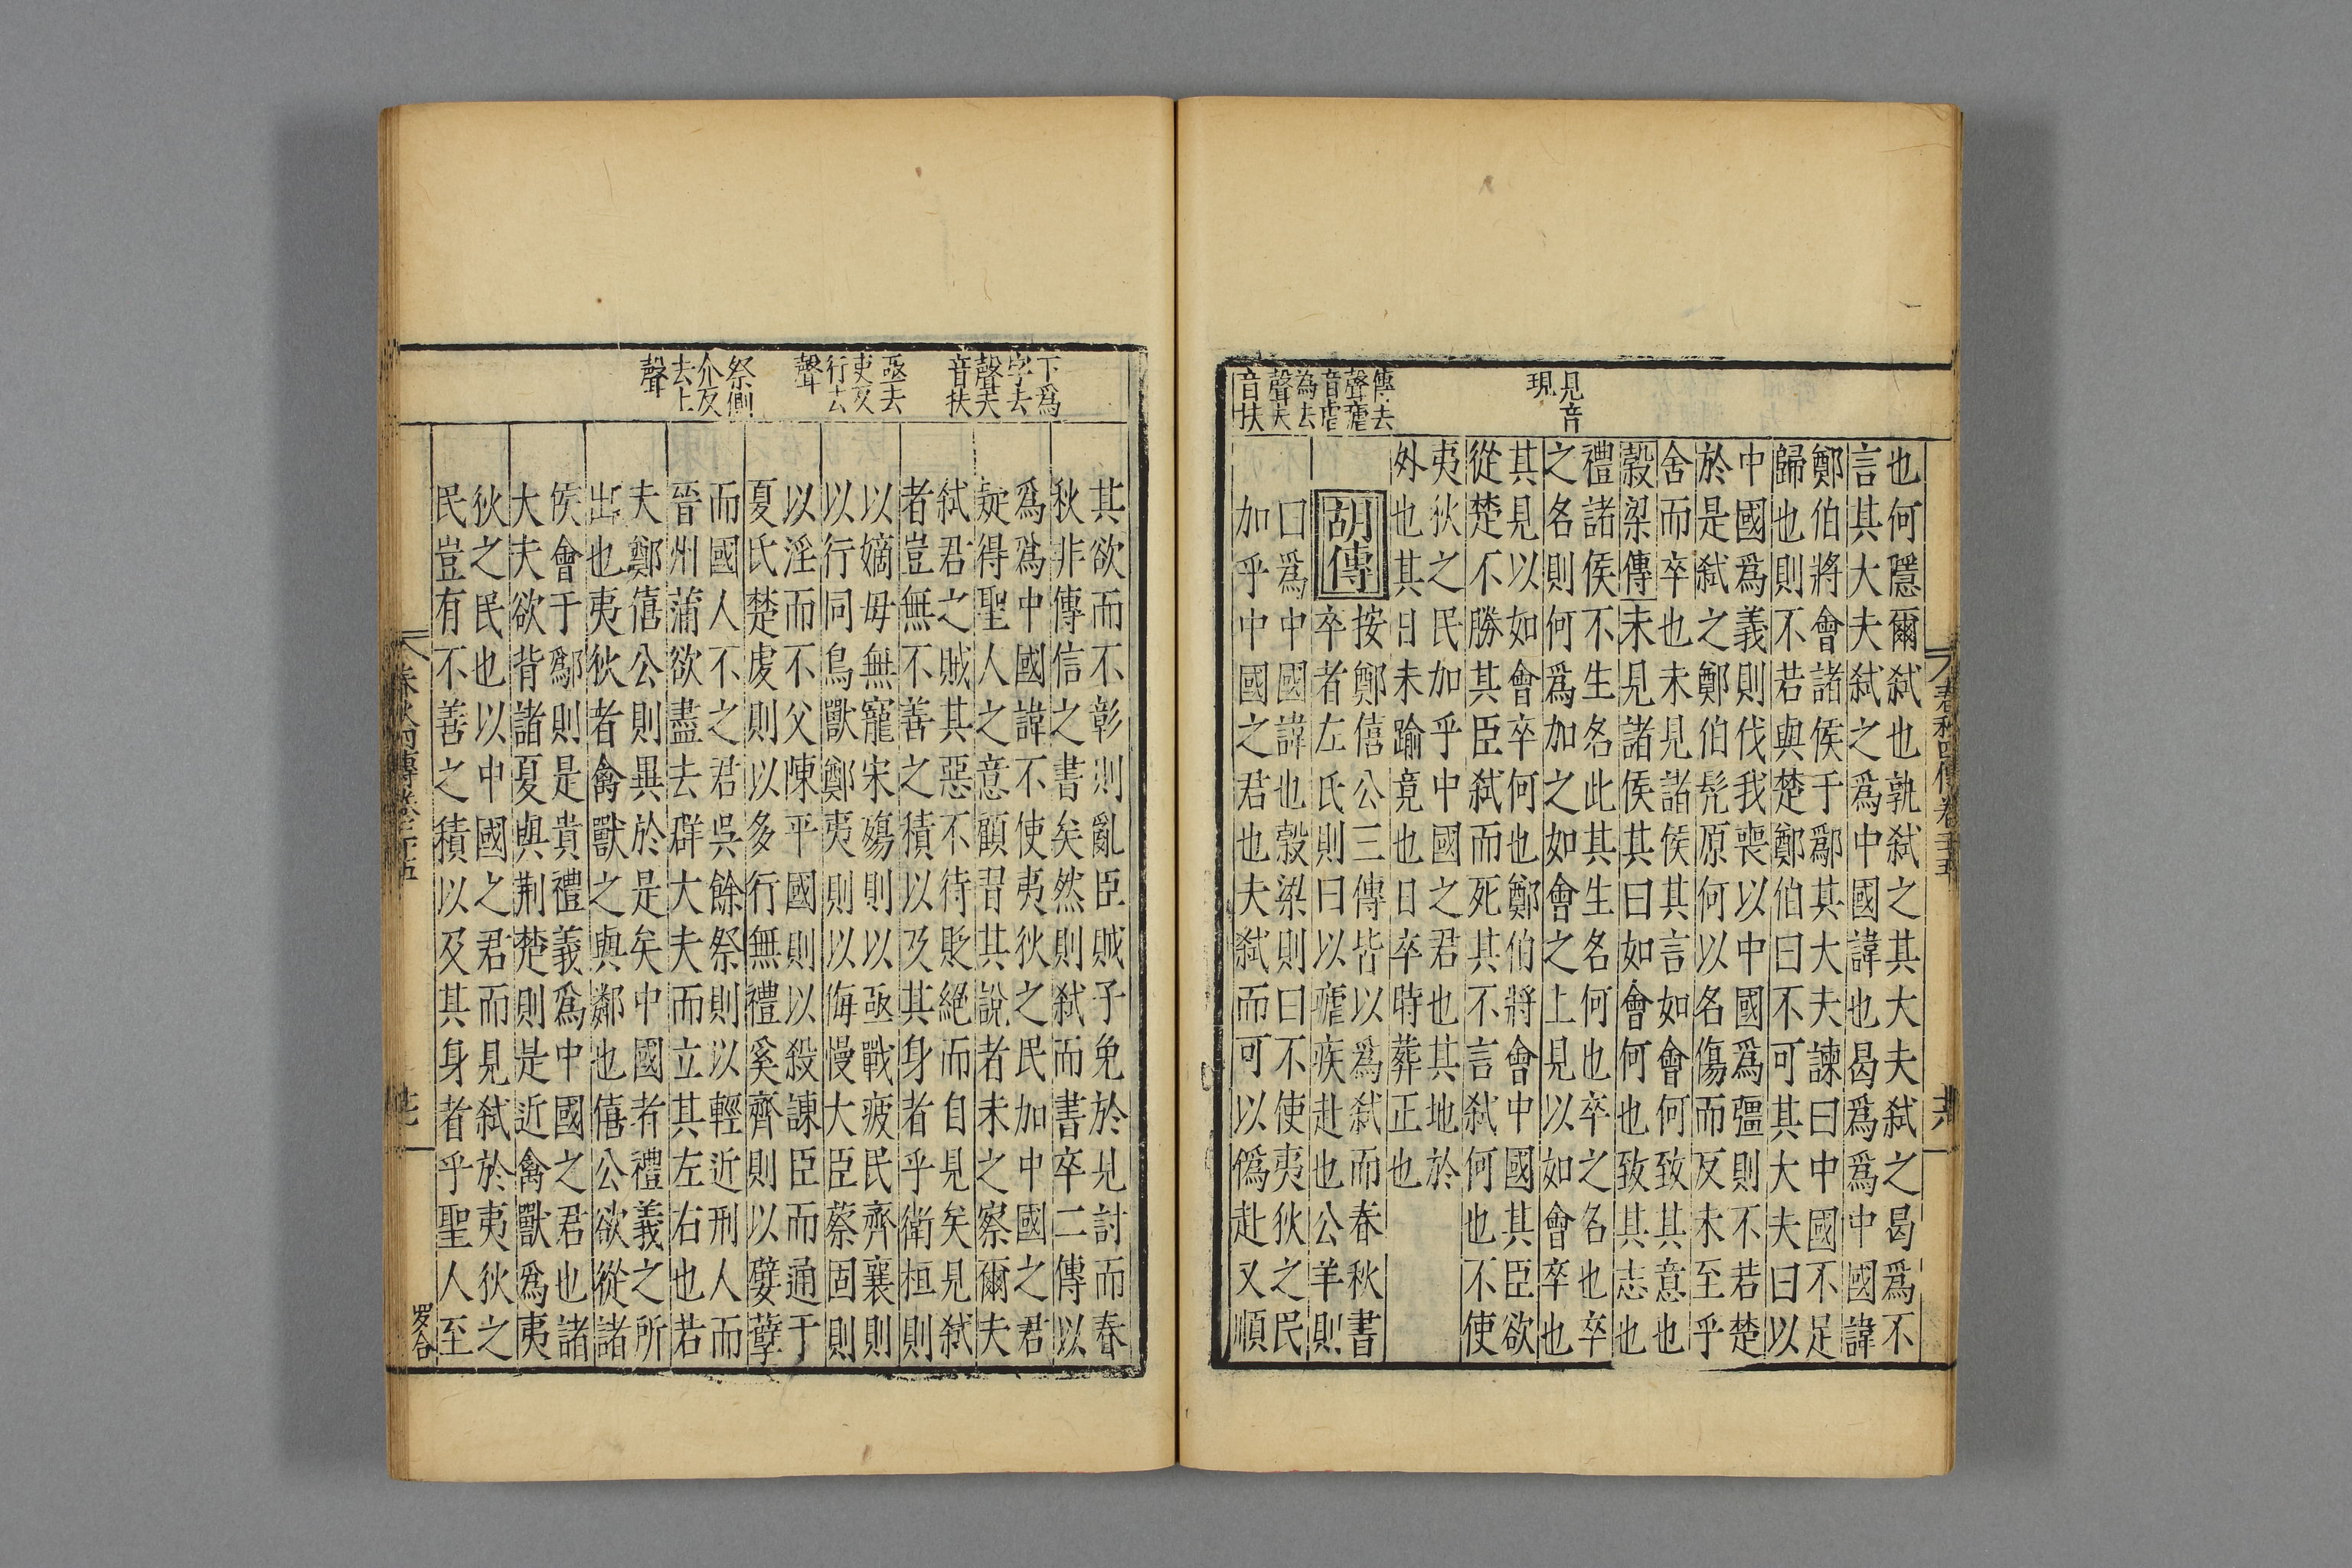 傳去
聲瘧
音虐
為去
聲夫
音扶
見音
現
也何隱爾弑也孰弑之其大夫弑之曷為不
言其大夫弑之爲中國諱也曷爲爲中國諱
鄭伯將會諸侯于鄬其大夫諫曰中國不足
歸也則不若與楚鄭伯曰不可其大夫曰以
中國爲義則伐我喪以中國爲彊則不若楚
於是弑之鄭伯髠原何以名傷而反未至乎
舍而卒也未見諸侯其言如會何致其意也
穀梁傳未見諸侯其曰如會何也致其志也
禮諸侯不生名此其生名何也卒之名也卒
之名則何爲加之如會之上見以如會卒也
其見以如會卒何也鄭伯將會中國其臣欲
從楚不勝其臣弑而死其不言弑何也不使
夷狄之民加乎中國之君也其地於
外也其日未踰竟也日卒時葬正也
胡傳
按鄭僖公三傳皆以爲弑而春秋書
卒者左氏則曰以瘧疾赴也公羊則
曰爲中國諱也穀梁則曰不使夷狄之民
加乎中國之君也夫弑而可以僞赴又順
春秋四傳卷二十五
下爲
字去
聲夫
音扶
亟去
吏反
行去
聲
祭側
介反
去上
聲
其欲而不彰則亂臣賊子免於見討而春
秋非傳信之書矣然則弑而書卒二傳以
爲爲中國諱不使夷狄之民加中國之君
疑得聖人之意顧習其說者未之察爾夫
弑君之賊其惡不待貶絕而自見矣見弑
者豈無不善之積以及其身者乎衛桓則
以嫡毋無寵宋殤則以亟戰疲民齊襄則
以行同鳥獸鄭夷則以侮慢大臣蔡固則
以淫而不父陳平國則以殺諫臣而通于
夏氏楚虔則以多行無禮奚齊則以嬖孽
而國人不之君吳餘祭則以輕近刑人而
晉州蒲欲盡去群大夫而立其左右也若
夫鄭僖公則異於是矣中國者禮義之所
出也夷狄者禽獸之與鄰也僖公欲從諸
侯會于鄬則是貴禮義爲中國之君也諸
大夫欲背諸夏與荆楚則是近禽獸爲夷
狄之民也以中國之君而見弑於夷狄之
民豈有不善之積以及其身者乎聖人至